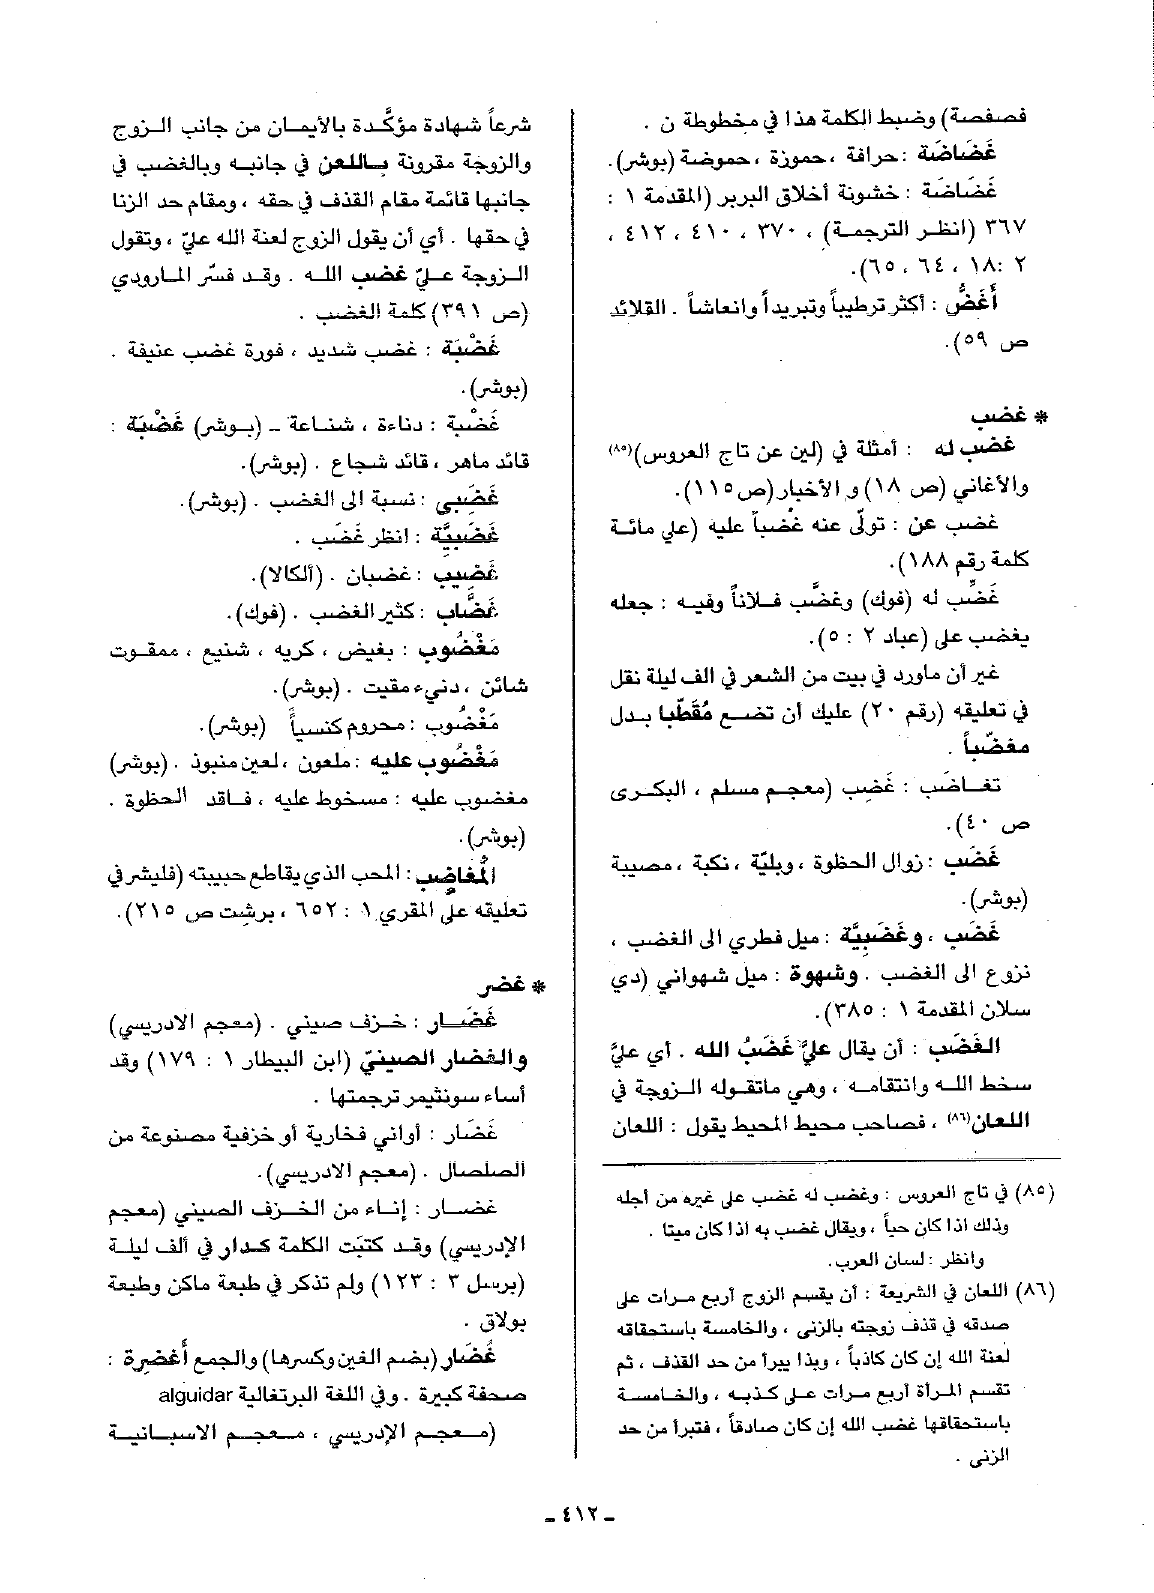 فصفصة) وضبط الكلمة هذا في مخطوطة ن .
غَضَاضَة : حرافة ، حموزة ، حموضة (بوشر).
غَضَاضَة : خشونة أخلاق البربر (المقدمة ١ :
٣٦٧ (انظر الترجمة) ، ٣٧٠ ، ٤١٠ ، ٤١٢ ،
٢ : ١٨ ، ٦٤ ، ٦٥).
أَغَضُّ : أكثر ترطيباً وتبريداً وانعاشاً . القلائد
ص ٥٩).
* غضب
غضب له : أمثلة في (لين عن تاج العروس)(٨٥)
والأغاني (ص ١٨) و الأخبار (ص ١١٥).
غضب عن : تولّى عنه غضباً عليه (علي مائة
كلمة رقم ١٨٨).
غضِّب له (فوك) وغضَّب فلاناً وفيه : جعله
يغضب على (عباد ٢ : ٥).
غير أن ماورد في بيت من الشعر في الف ليلة نقل
في تعليقه (رقم ٢٠) عليك أن تضع مُقَطِّبا بدل
مغضّباً .
تغاضَب : غَضِب (معجم مسلم ، البكرى
ص ٤٠).
غَضَب : زوال الحظوة ، وبليّة ، نكبة ، مصيبة
(بوشر).
غَضَب ، وغَضَبِيَّة : ميل فطري الى الغضب ،
نزوع الى الغضب . وشهوة : ميل شهواني (دي
سلان المقدمة ١ : ٣٨٥).
الغَضَب : أن يقال عليَّ غَضَبُ الله . أي عليَّ
سخط الله وانتقامه ، وهي ماتقوله الزوجة في
اللعان(٨٦) ، فصاحب محيط المحيط يقول : اللعان
(٨٥) في تاج العروس : وغضب له غضب على غيره من أجله
وذلك اذا كان حياً ، ويقال غضب به اذا كان ميتا .
وانظر : لسان العرب.
(٨٦) اللعان في الشريعة : أن يقسم الزوج أربع مرات على
صدقه في قذف زوجته بالزنى ، والخامسة باستحقاقه
لعنة الله إن كان كاذباً ، وبذا يبرأ من حد القذف ، ثم
تقسم المرأة أربع مرات على كذبه ، والخامسة
باستحقاقها غضب الله إن كان صادقاً ، فتبرأ من حد
الزنى .
شرعاً شهادة مؤكَّدة بالأيمان من جانب الزوج
والزوجة مقرونة باللعن في جانبه وبالغضب في
جانبها قائمة مقام القذف في حقه ، ومقام حد الزنا
في حقها . أي أن يقول الزوج لعنة الله عليّ ، وتقول
الزوجة عليّ غضب الله . وقد فسّر المارودي
(ص ٣٩١) كلمة الغضب .
غَضْبَة : غضب شديد ، فورة غضب عنيفة .
(بوشر).
غَضْبة : دناءة ، شناعة ـ (بوشر) غَضْبَة :
قائد ماهر ، قائد شجاع . (بوشر).
غَضَبِي : نسبة الى الغضب . (بوشر).
غَضَبِيَّة : انظر غَضَب .
غَضِيب : غضبان . (ألكالا).
غَضَّاب : كثير الغضب . (فوك).
مَغْضُوب : بغيض ، كريه ، شنيع ، ممقوت
شائن ، دنيء مقيت . (بوشر).
مَغْضُوب : محروم كنسياً (بوشر).
مَغْضُوب عليه : ملعون ، لعين منبوذ . (بوشر)
مغضوب عليه : مسخوط عليه ، فاقد الحظوة .
(بوشر).
المُغاضِب : المحب الذي يقاطع حبيبته (فليشر في
تعليقه على المقري ١ : ٦٥٢ ، برشت ص ٢١٥).
* غضر
غَضَار : خزف صيني . (معجم الادريسي)
والغضار الصينيّ (ابن البيطار ١ : ١٧٩) وقد
أساء سونثيمر ترجمتها .
غَضَار : أواني فخارية أو خزفية مصنوعة من
الصلصال . (معجم الادريسي).
غضار : إناء من الخزف الصيني (معجم
الإدريسي) وقد كتبَت الكلمة كدار في ألف ليلة
(برسل ٣ : ١٢٣) ولم تذكر في طبعة ماكن وطبعة
بولاق .
غُضَار (بضم الغين وكسرها) والجمع أَغضِرة :
صحفة كبيرة . وفي اللغة البرتغالية alguidar
(معجم الإدريسي ، معجم الاسبانية
ـ ٤١٢ ـ